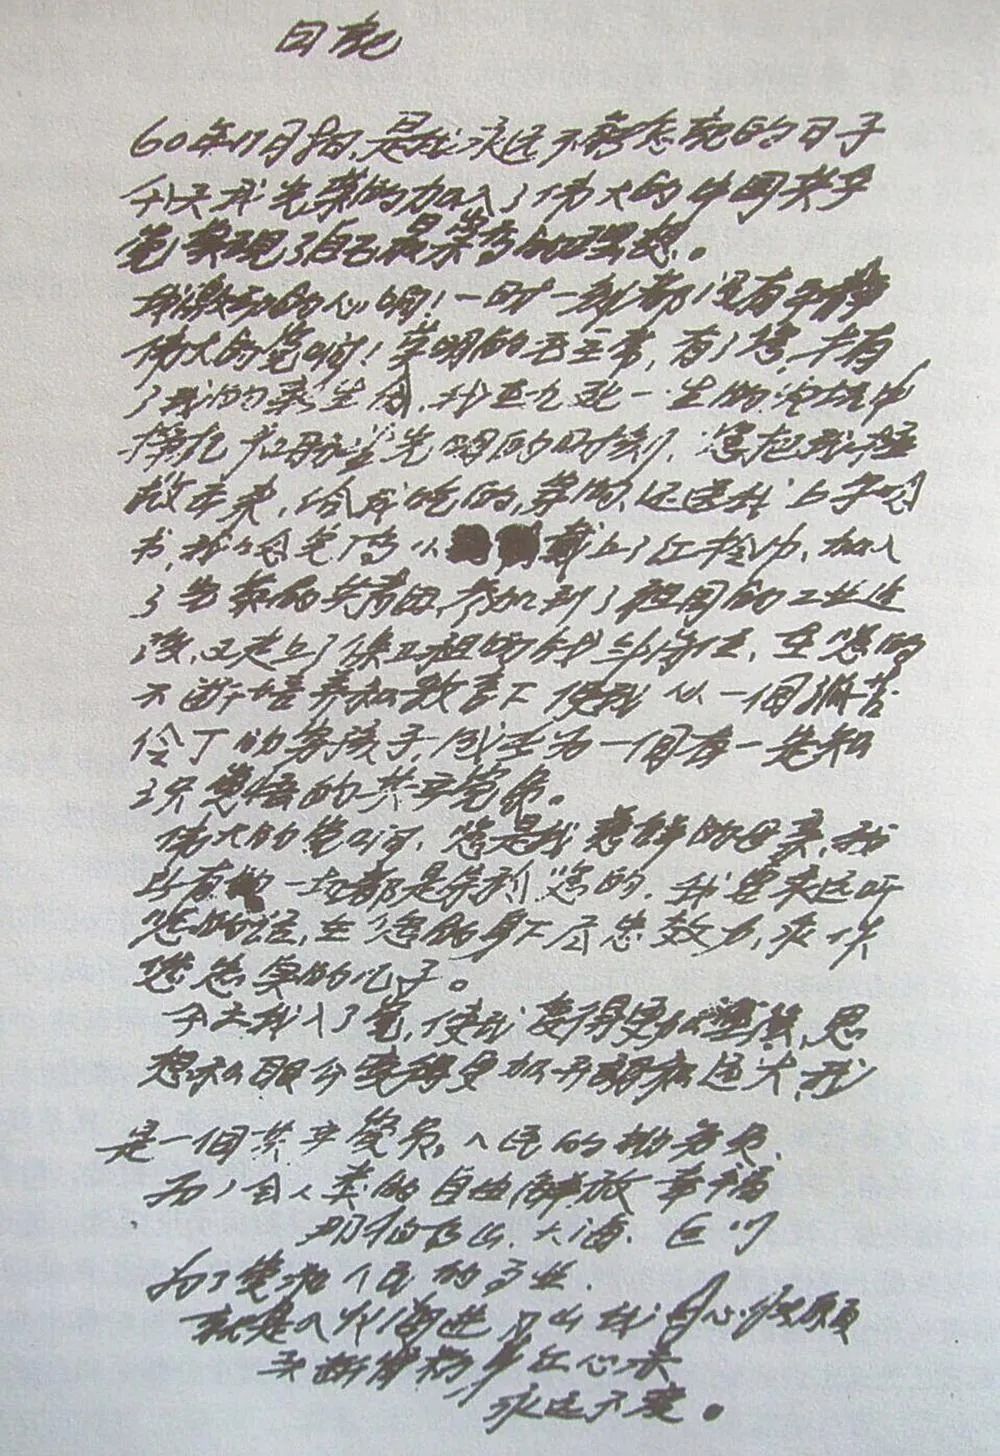 日记
60年11月8日,是我永远不能忘记的日子
今天我光荣的加入了伟大的中国共产
党实现了自己最崇高的理想。
我激动的心啊!一时一刻都没有平静
伟大的党啊!英明的毛主席,有了您,才有
了我的新生命,我在九死一生的火坑中
挣扎和盼望光明的时刻,您把我拯
救出来,给我吃的,穿的,还送我上学念
书,我念完了高小 戴上了红领巾,加入
了光荣的共青团,参加到了祖国的工业建
设,又走上了保卫祖国的战斗岗位,在您的
不断培养和教育下使我从一个孤苦
伶丁的穷孩子,成长为一个有一定知
识觉悟的共产党员。
伟大的党啊,您是我慈祥的母亲,我
所有的一切都是属于您的,我要永远听
您的话,在您的身下尽忠效力,永作
您忠实的儿子。
今天我入了党,使我变得更加坚强,思
想和眼界变得更加开阔和远大,我
是一个共产党员,人民的勤务员,
为了全人类的自由解放幸福
那怕高山、大海、巨川
为了党和人民的事业,
就是入火海进刀山我甘心情愿
头断骨粉身红心赤
永远不变。